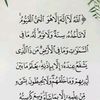 ﴿ اللَّهُ لَا إِلَٰهَ إِلَّا هُوَ الْحَيُّ الْقَيُّومُ
لَا تَأْخُذُهُ سِنَةٌ وَلَا نَوْمٌ لَهُ مَا فِي
السَّمَاوَاتِ وَمَا فِي الْأَرْضِ مَنْ ذَا الَّذِي
يَشْفَعُ عِنْدَهُ إِلَّا بِإِذْنِهِ يَعْلَمُ مَا بَيْنَ
أَيْدِيهِمْ وَمَا خَلْفَهُمْ وَلَا يُحِيطُونَ بِشَيْءٍ
مِنْ عِلْمِهِ إِلَّا بِمَا شَاءَ وَسِعَ كُرْسِيُّهُ